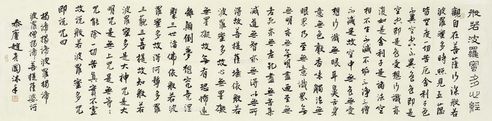 般若波羅蜜多心經
觀自在菩薩行深般若
波羅蜜多時照見五蘊
皆空度一切苦厄舍利子色
不異空空不異色色即是
空空即是色受想行識亦
復如是舍利子是諸法空
相不生不滅不垢不淨不增
不減是故空中無色無受
想行識無眼耳鼻舌身
意無色聲香味觸法無
眼界乃至無意識界無
無明亦無無明盡乃至
無老死亦無老死盡無苦
集滅道無智亦無得以無
所得故菩提薩埵依般若
波羅蜜多故心無罣礙
無罣礙故無有恐怖遠
離顛倒夢想究竟涅
槃三世諸佛依般若
波羅蜜多故得阿耨多羅
三藐三菩提故知般若
波羅蜜多是大神咒是大
明咒是無上咒是無等等
咒能除一切苦真實不虛
故說般若波羅蜜多咒
即說咒曰
揭諦揭諦波羅揭諦
波羅僧揭諦菩提薩婆訶